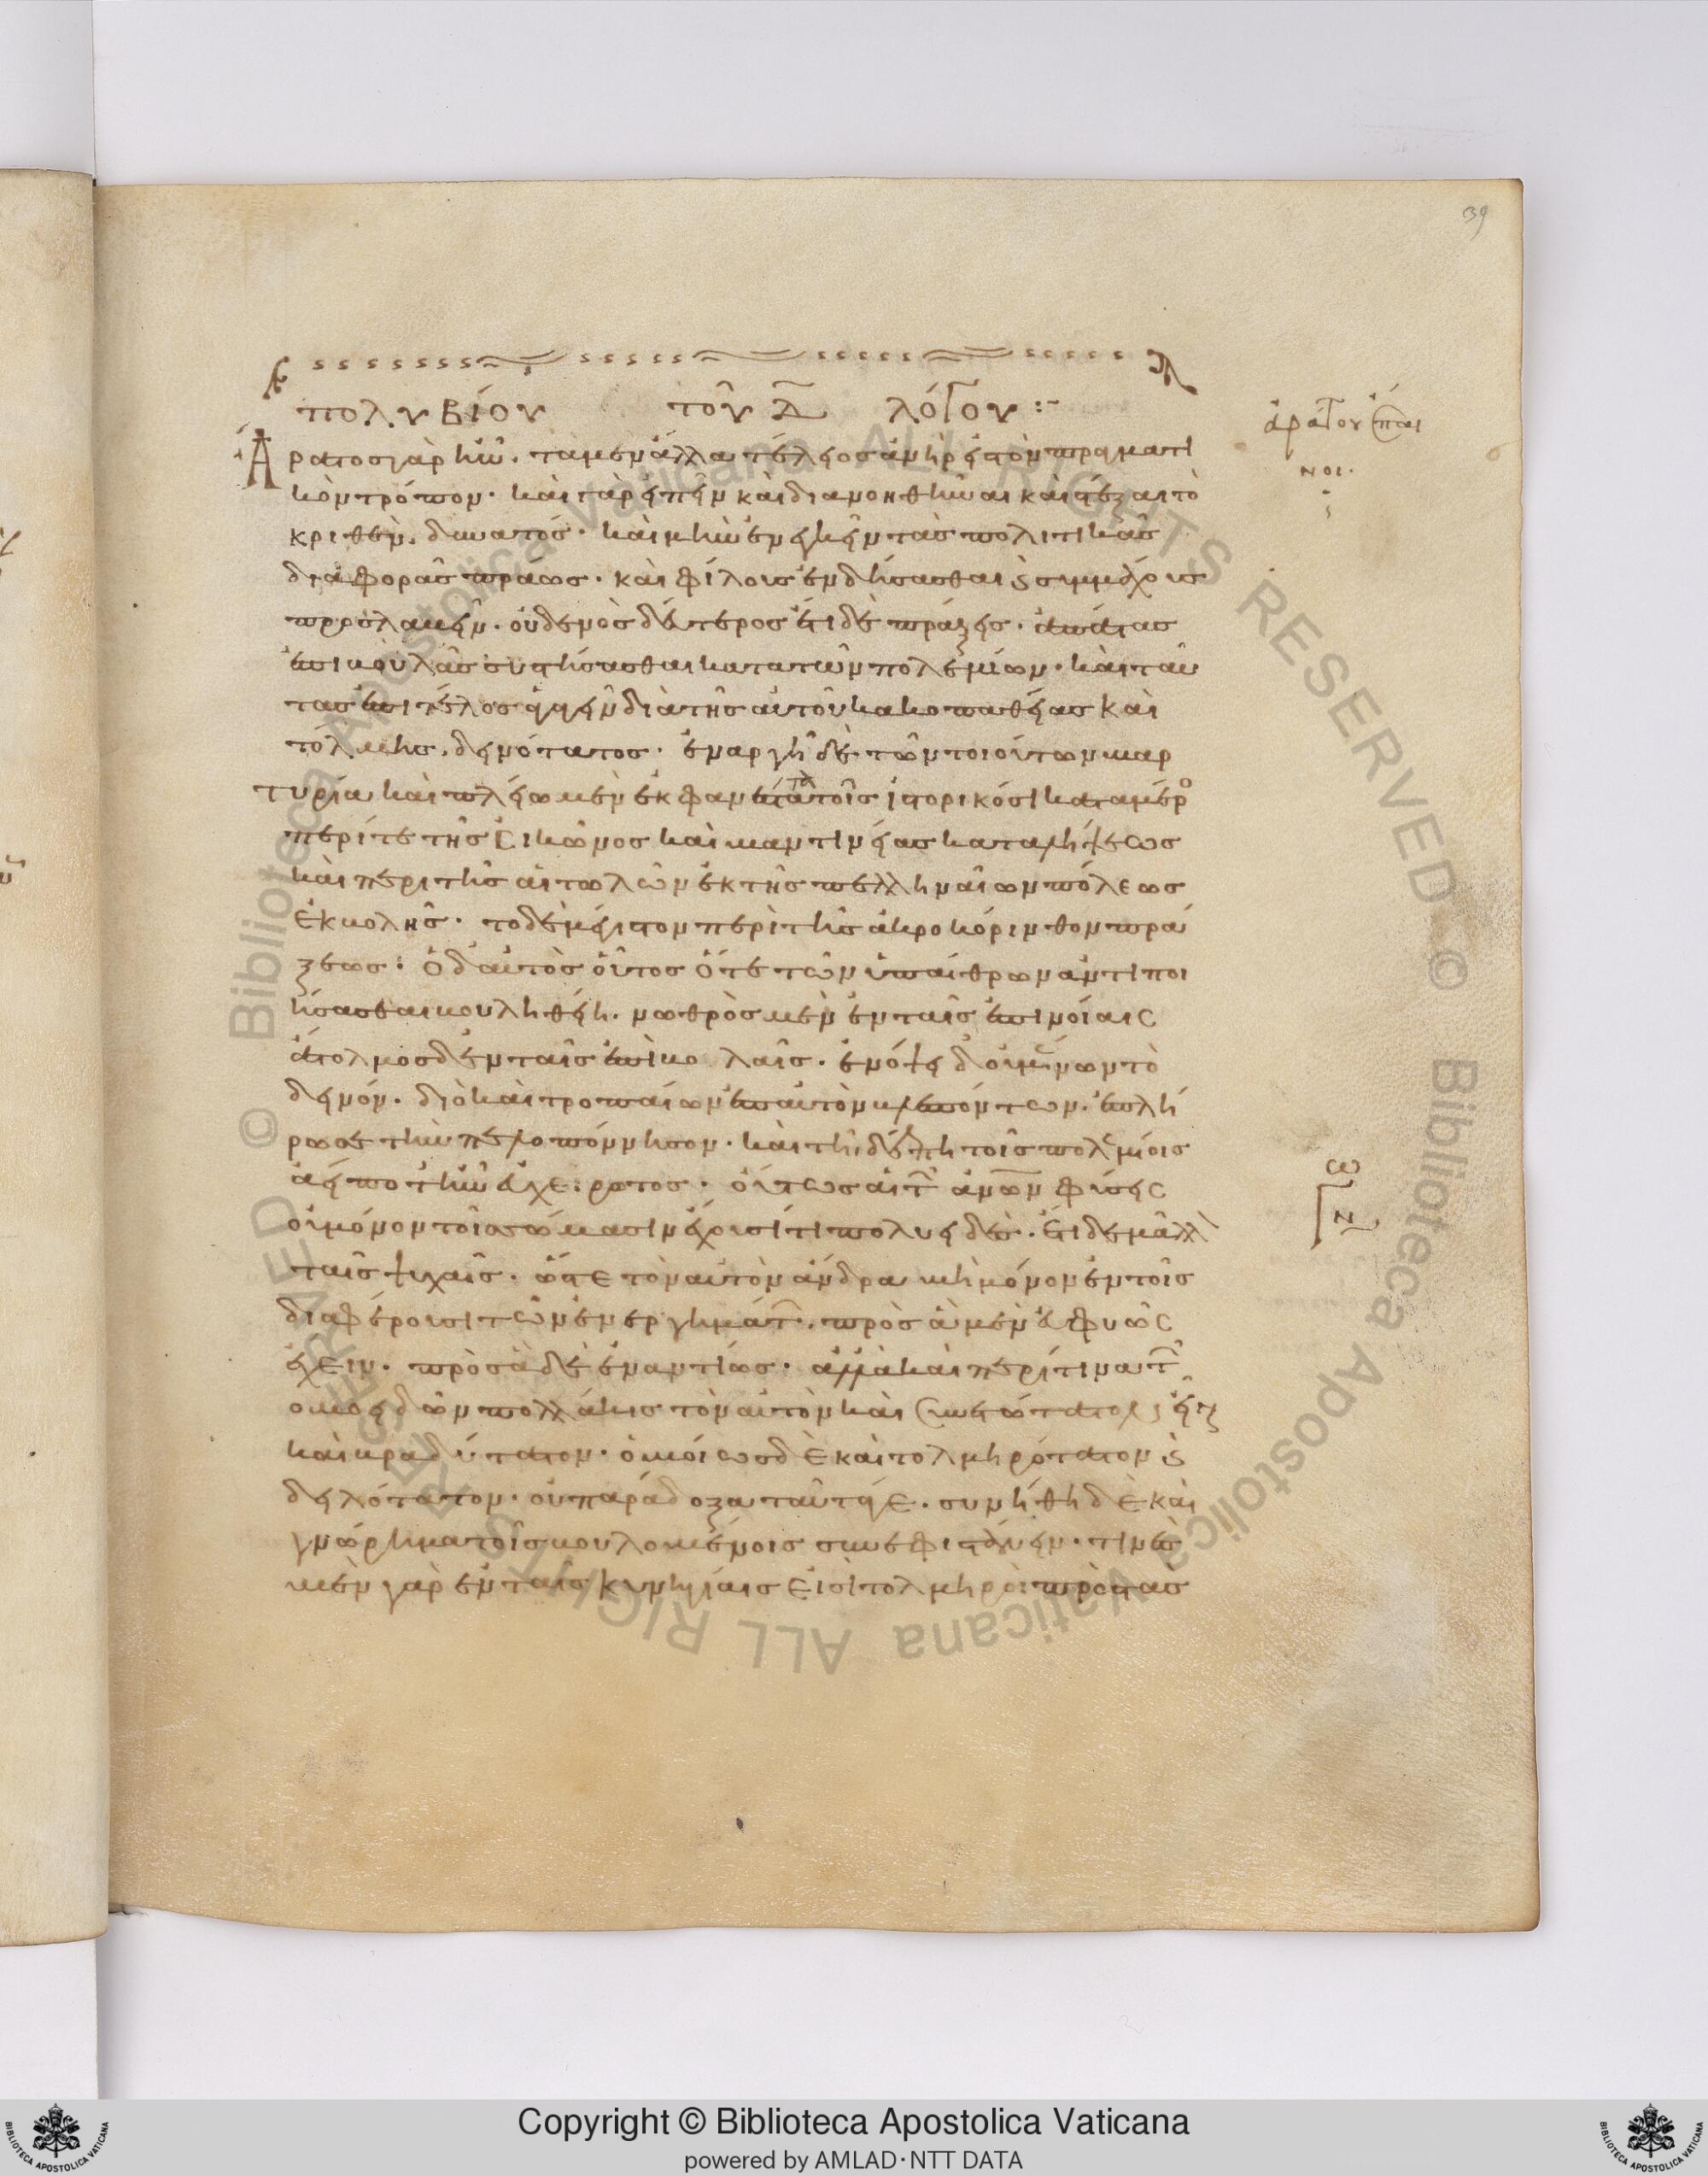 39
πολυβίου τοῦ Δ λόγου :~
ἀράτου ἔπαι
νοι.
Ἄρατος γὰρ ἦν. τὰ μὲν ἄλλα τέλειος ἀνὴρ εἰς τὸν πραγματι
κὸν τρόπον· καὶ γὰρ εἰπεῖν καὶ διανοηθῆναι καὶ στέξαι τὸ
κριθὲν, δυνατός· καὶ μὴν ἐνεγκεῖν τὰς πολιτικὰς
διαφορὰς πράως· καὶ φίλους ἐνδήσασθαι ϗ συμμάχους
προσλαβεῖν. οὐδενὸς δεύτερος ἔτι δὲ πράξεις. ἀπάτας
ἐπιβουλὰς συστήσασθαι κατὰ τῶν πολεμίων· καὶ ταύ
τας ἐπὶ τέλος ἀγαγεῖν διὰ τῆς αὐτοῦ κακοπαθείας καὶ
τόλμης, δεινότατος· ἐναργῆ δὲ τῶν τοιούτων μαρ
τυρία καὶ πλείω μὲν ἐκφανέστατα τοῖς ἱστορικόσι κατὰ μέρο
περί τε τῆς Σικυῶνος καὶ μαντινείας καταλήψεως
καὶ περὶ τῆς αἰτωλῶν ἐκ τῆς πελληναίων πόλεως
ἐκβολῆς· τὸ δὲ μέγιστον περὶ τῆς ἀκροκόρινθον πρά
ξεως· ὁ δ' αὐτὸς οὗτος ὅτε τῶν ὑπαίθρων ἀντιποι
ήσασθαι βουληθείη. νωθρὸς μὲν ἐν ταῖς ἐπινοίαις
ἄτολμος δ' ἐν ταῖς ἐπιβολαῖς. ἐν ὄψει δ' οὐ μένων τὸ
δεινόν. διὸ καὶ τροπαίων ἐπ' αὐτὸν βλεπόντων. ἐπλή
ρωσε τὴν πελοπόννησον. καὶ τῆδέ πῃ τοῖς πολεμίοις
ἀεί ποτ' ἦν εὐχείρωτος· οὕτως αἱ τ ἀνων φύσεις
οὐ μόνον τοῖς σώμασιν ἔχουσί τι πολυειδές. ἔτι δὲ μᾶλλ
ταῖς ψυχαῖς. ὥστε τὸν αὐτὸν ἄνδρα μὴ μόνον ἐν τοῖς
διαφέρουσι τῶν ἐνεργημάτ, πρὸς ἃ μὲν εὐφυῶς
ἔχειν. πρὸς ἃ δὲ ἐναντίως. ἀλλὰ καὶ περί τινα τ
ὁμοειδῶν πολλάκις τὸν αὐτὸν καὶ συνετώτατον εἶναι
καὶ βραδύτατον· ὁμοίως δὲ καὶ τολμηρότατον ϗ
δειλότατον· οὐ παράδοξα ταῦτά γε. συνήθη δὲ καὶ
γνώριμα τοῖς βουλομένοις συνεφιστάνειν· τινὲς
μὲν γὰρ ἐν ταῖς κυνηγίαις εἰσὶ τολμηροὶ πρὸς τὰς